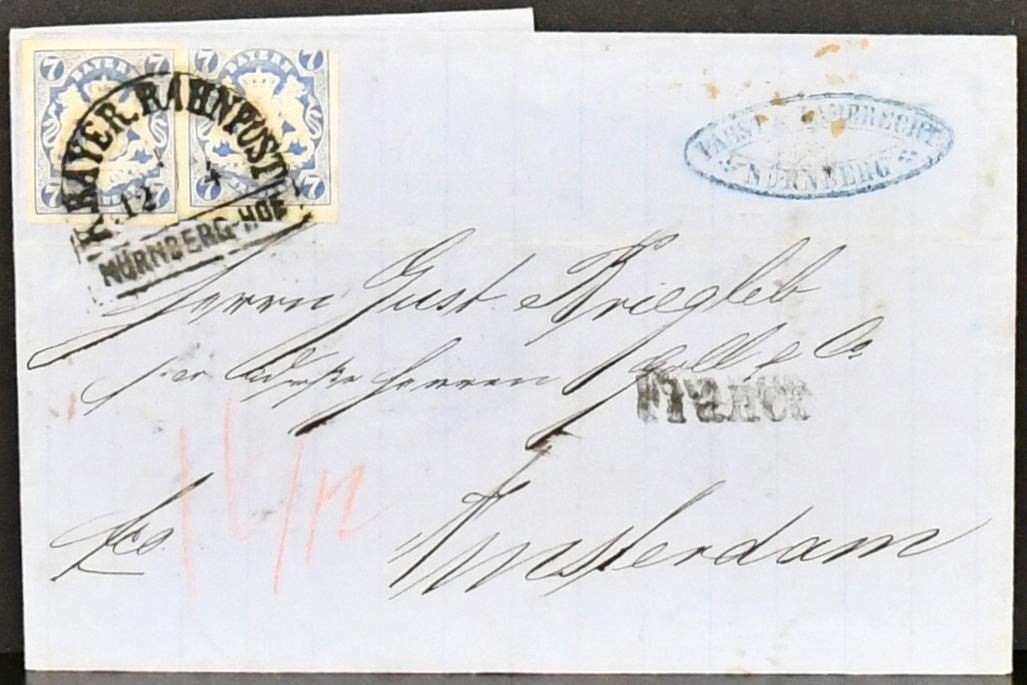 7 BAYERN 7
7 7
7 BAYERN 7
7 7
K. BAYER. BAHNPOST
12 4
NÜRNBERG-HOF
PABST & LAMBRECHT
NÜRNBERG
Herrn Gust. Kriegleb
per Adresse Herren & Co
Franco
fco. Amsterdam